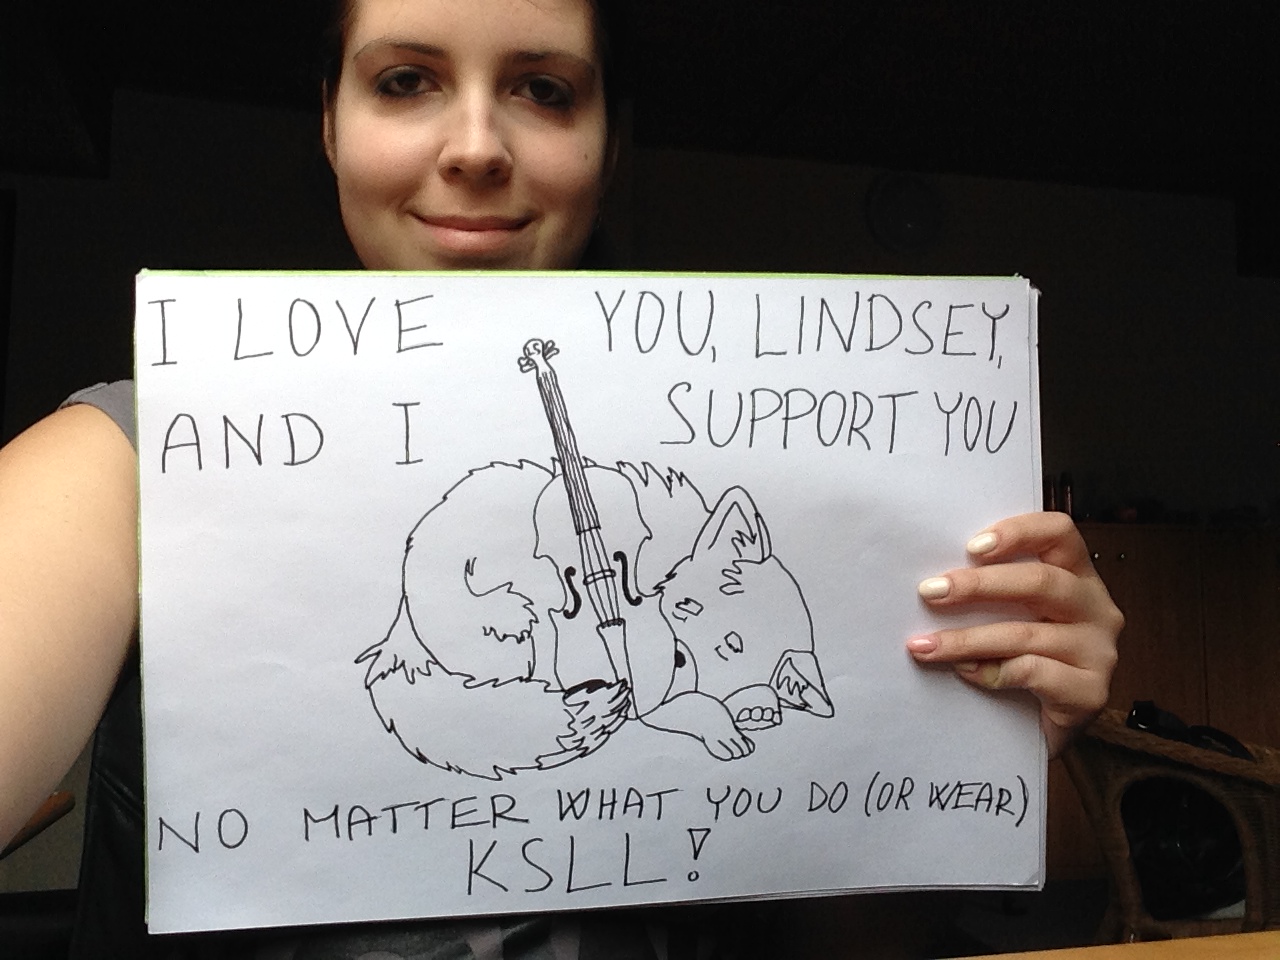 I LOVE YOU, LINDSEY,
AND I SUPPORT YOU
LS
NO MATTER WHAT YOU DO (OR WEAR)
KSLL!